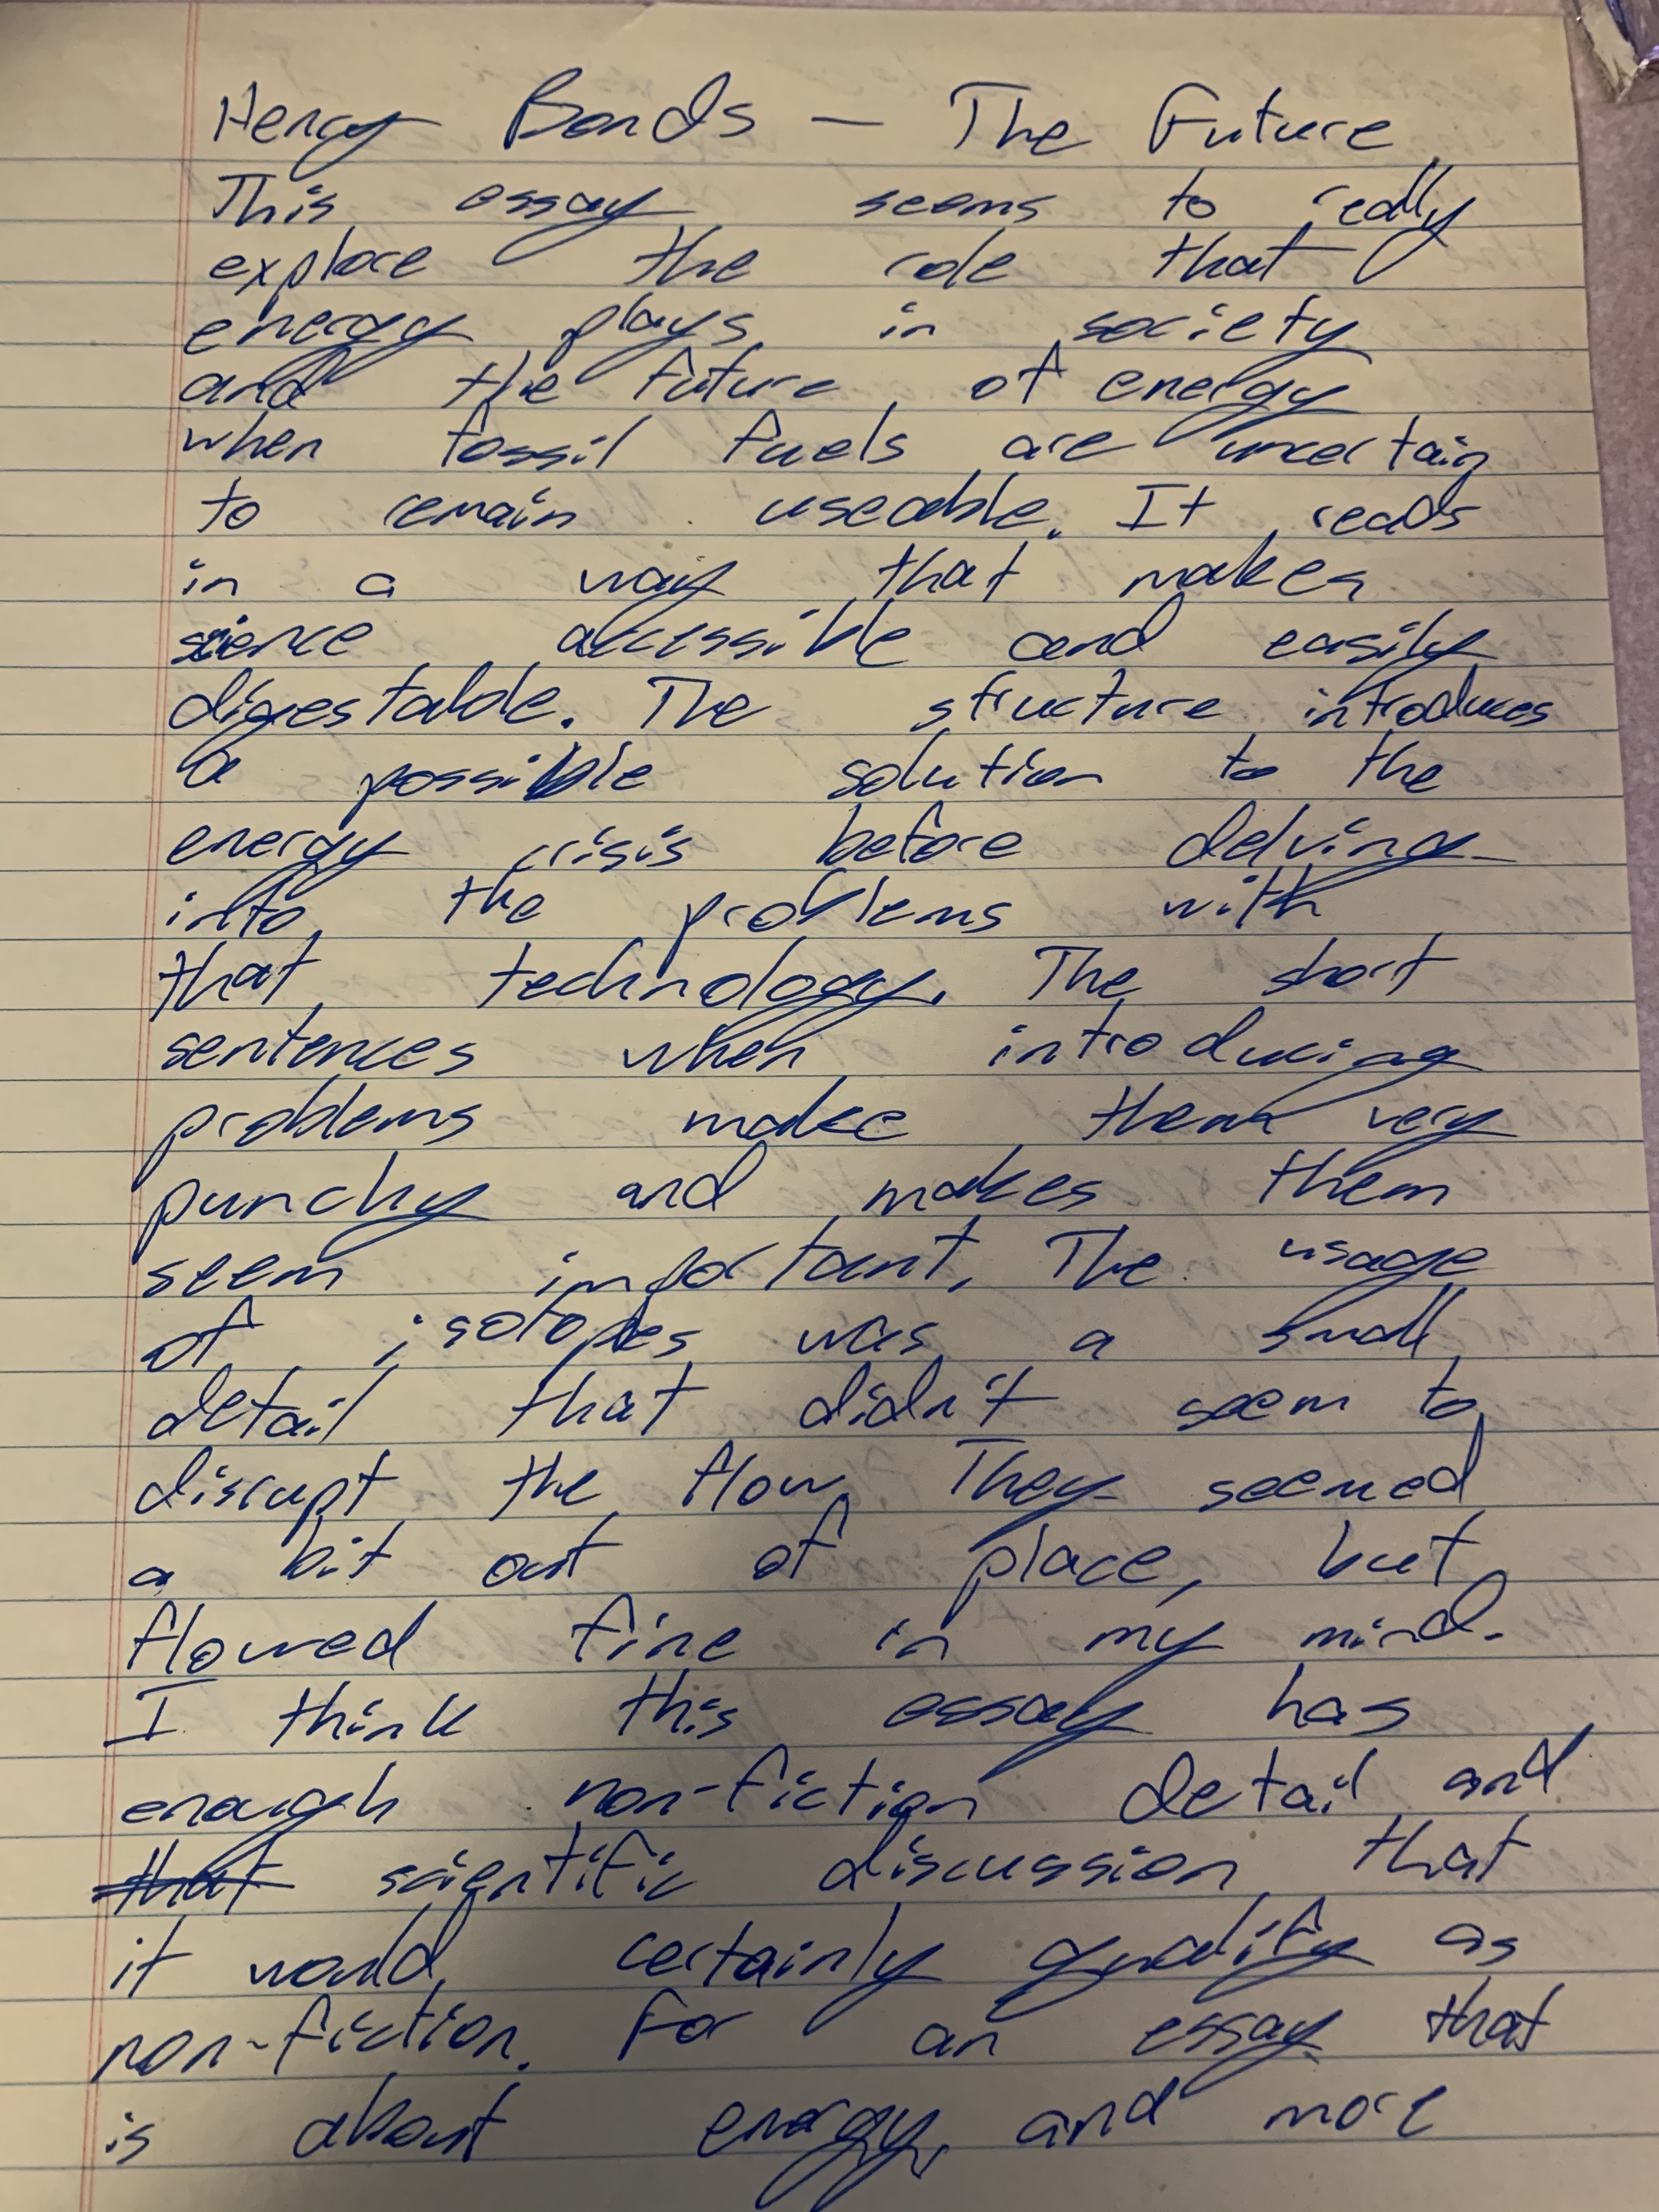 Henry Bonds — The Future
This essay seems to really
explore the role that
energy plays in society
and the future of energy
when fossil fuels are uncertain
to remain useable. It reads
in a way that makes
science accessible and easily
digestable. The structure introduces
a possible solution to the
energy crisis before delving
into the problems with
that technology. The short
sentences when introducing
problems make them very
punchy and makes them
seem important. The usage
of isotopes was a small
detail that didn't seem to
disrupt the flow. They seemed
a bit out of place, but
flowed fine in my mind.
I think this essay has
enough non-fiction detail and
that scientific discussion that
it would certainly qualify as
non-fiction. For an essay that
is about energy, and more